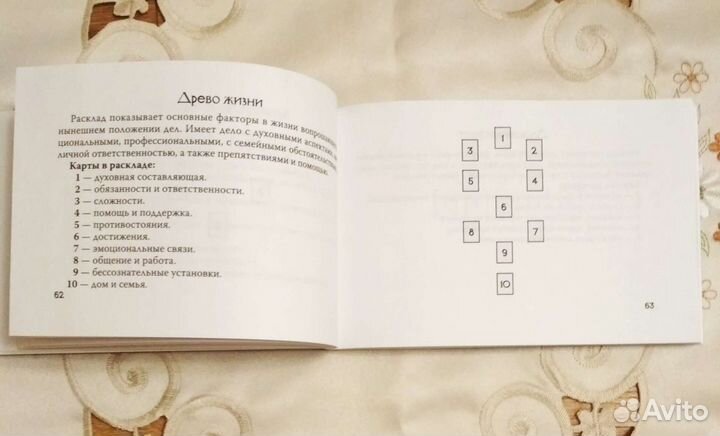 Древо жизни
Расклад показывает основные факторы в жизни
нынешнем положении дел. Имеет дело с духовными
циональными, профессиональными, с семейными
личной ответственностью, а также препятствиями и помощью.
Карты в раскладе:
1 — духовная составляющая.
2 — обязанности и ответственности.
3 — сложности.
4 — помощь и поддержка.
5 — противостояния.
6 — достижения.
7 — эмоциональные связи.
8 — общение и работа.
9 — бессознательные установки.
10 — дом и семья.
62
1
3 2
5 4
6
8 7
9
10
63
Avito